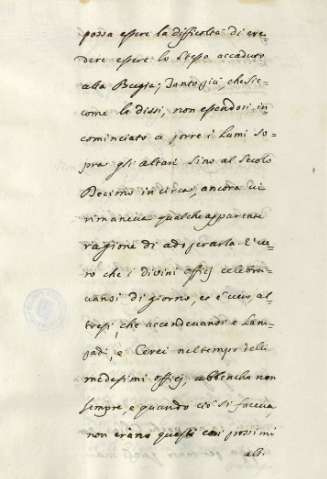 possa essere la difficoltà di cre=
dere essere lo stesso accaduto
alla Bugia; Tanto più, che sic=
come le dissi, non essendosi in=
cominciato a porre i lumi so=
pra gli altari sino al Secolo
Decimo in circa, ancora vi
rimaneva qualche apparente
ragione di adoperarla. E' ve=
ro che i divini officj celebra=
vansi di giorno, ed è vero al=
tresì, che accendevansi e Lam=
padi, e Cerei nel tempo delli
medesimi officj, abbenchè non
sempre e quando ciò si faceva,
non erano questi così prossimi
all'